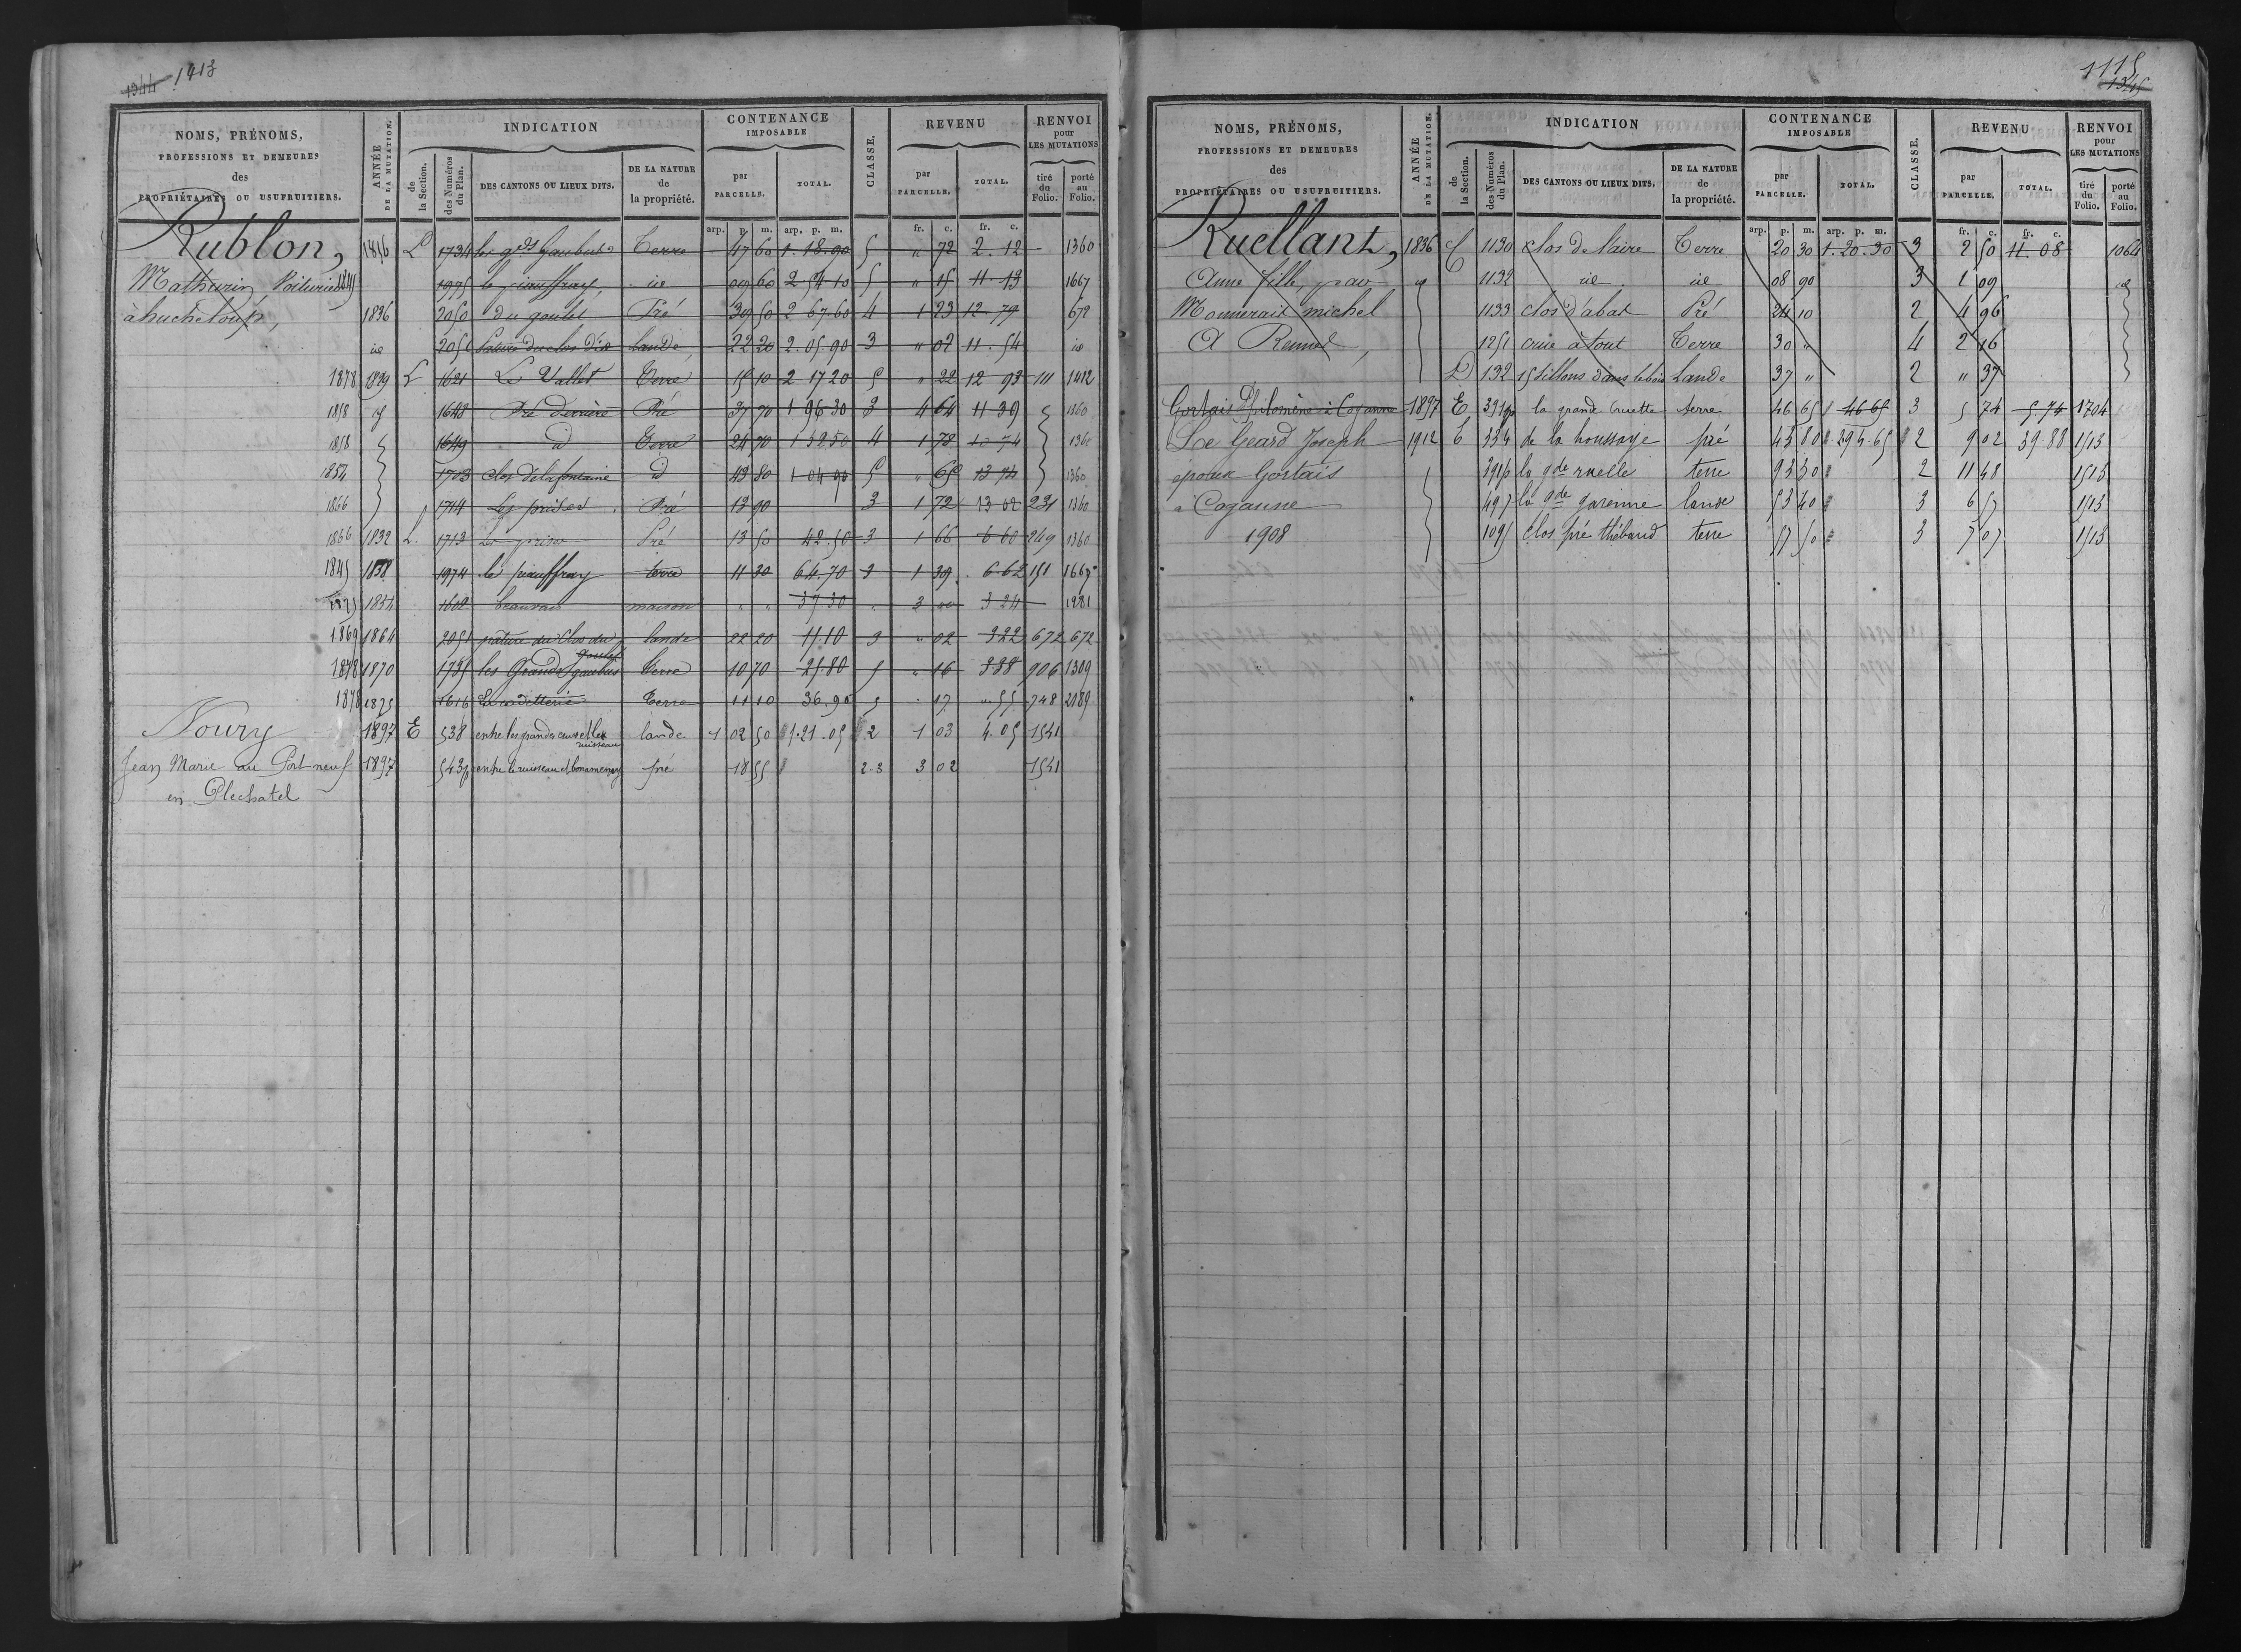 1344 1413
NOMS, PRÉNOMS,
PROFESSIONS ET DEMEURES
des
PROPRIÉTAIRES OU USUFRUITIERS.
ANNÉE
DE LA MUTATION.
INDICATION
de
la Section.
des Numéros
du Plan.
DES CANTONS OU LIEUX DITS.
DE LA NATURE
de
la propriété.
CONTENANCE
IMPOSABLE
par
PARCELLE.
TOTAL.
CLASSE.
REVENU
par
PARCELLE.
TOTAL.
RENVOI
pour
LES MUTATIONS
tiré
du
Folio.
porté
au
Folio.
arp. p. m. arp. p. m. fr. c. fr. c.
Rublon, L 1734 Terre 47 60 1.18.90 5 " 72 2.12 1360
Mathurin 1975 id 09 60 2 54 10 5 " 15 11.13 1667
1836 2050 du goulet Pré 30 50 2 67.60 4 1 23 12.79 672
id 2051 Lande 22 20 2.05.90 3 " 02 11.54 id
1878 1829 L 1621 Le Vallet Terre 15 10 2 17 20 5 " 22 12 93 111 1412
1858 id 1648 Pré derrière Pré 37 70 1 96 30 3 4 64 11 39 1360
1858 1649 id Terre 24 70 1 32 50 4 1 78 13 74 1360
1854 1703 Clos de la fontaine id 43 80 1 04 90 5 " 65 13 74 1360
1866 1714 Les prises Pré 13 90 3 1 72 13 02 231 1360
1866 1832 L. 1713 Les prises Pré 13 50 42.50 3 1 66 6 60 249 1360
1845 1838 1974 le piauffray terre 11 30 64.70 3 1 39 6.62 151 1667
1875 1854 1608 beauvais maison " " 37 30 " 3 " 3 24 1981
1869 1864 2051 pature du Clos du goulet lande 22 20 11.10 3 " 02 3 22 672 672
1878 1870 1735 les Grands gaubus terre 10 70 25.80 5 " 16 3 38 906 1309
1878 1875 1616 La cadetterie Terre 11 10 36.90 5 . 17 " 55 748 2189
Noury 1897 E 538 entre les grandes ruelles ruisseau lande 1 02 50 1.21.05 2 1 03 4.05 1541
Jean Marie au Port neuf 1897 543p entre le ruisseau pré 18 55 2-3 3 02 1541
en Plechatel
1115
1345
NOMS, PRÉNOMS,
PROFESSIONS ET DEMEURES
des
PROPRIÉTAIRES OU USUFRUITIERS.
ANNÉE
DE LA MUTATION.
INDICATION
de
la Section.
des Numéros
du Plan.
DES CANTONS OU LIEUX DITS.
DE LA NATURE
de
la propriété.
CONTENANCE
IMPOSABLE
par
PARCELLE.
TOTAL.
CLASSE.
REVENU
par
PARCELLE.
TOTAL.
RENVOI
pour
LES MUTATIONS
tiré
du
Folio.
porté
au
Folio.
arp. p. m. arp. p. m. fr. c. fr. c.
Ruellant, 1836 C 1130 clos de laire Terre 20 30 1.20.30 3 2 50 11.08 1064
Anne fille, par id 1132 id id 08 90 3 1 09 id
Monnerait michel 1133 clos d'abat Pré 24 10 2 4 96
A Rennes, 1251 Terre 30 " 4 2 16
D 132 15 Sillons dans le bois Lande 37 " 2 " 37
Gortais Philomène à Cozanne 1897 E 391p la grande ruelle terre 46 65 46 65 3 5 74 5.74 1704
Le Geard Joseph 1912 E 334 de la houssaye pré 43 80 2.94.65 2 9 02 39.88 1513
epoux Gortais 391p la gde ruelle terre 93 30 2 11 48 1513
a Cozanne 497 la gde garenne lande 53 40 3 6 57 1513
1908 1095 Clos pré thébaud terre 57 50 3 7 07 1513